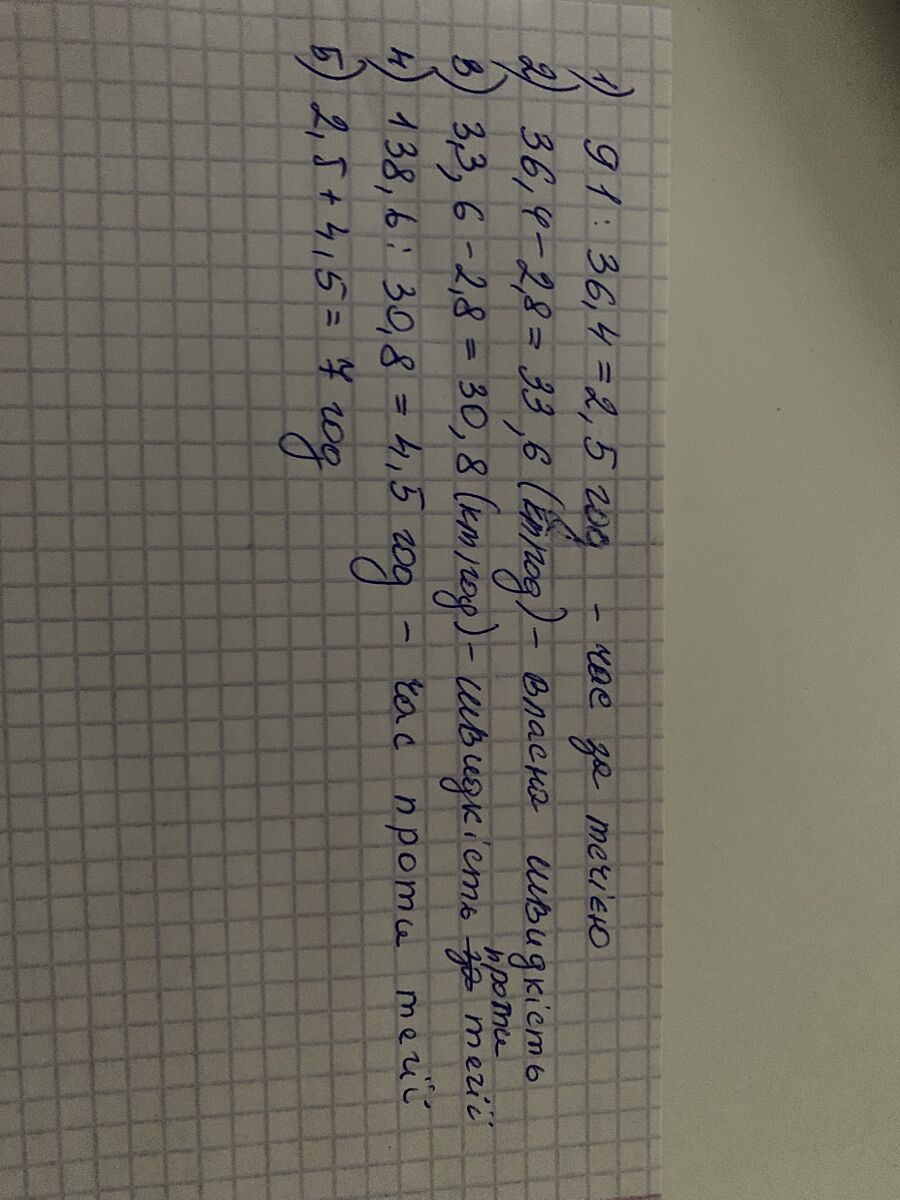 1) 91 : 36,4 = 2,5 год - час за течією
2) 36,4 - 2,8 = 33,6 (км/год) - власна швидкість
3) 33,6 - 2,8 = 30,8 (км/год) - швидкість проти течії
4) 138,6 : 30,8 = 4,5 год - час проти течії
5) 2,5 + 4,5 = 7 год